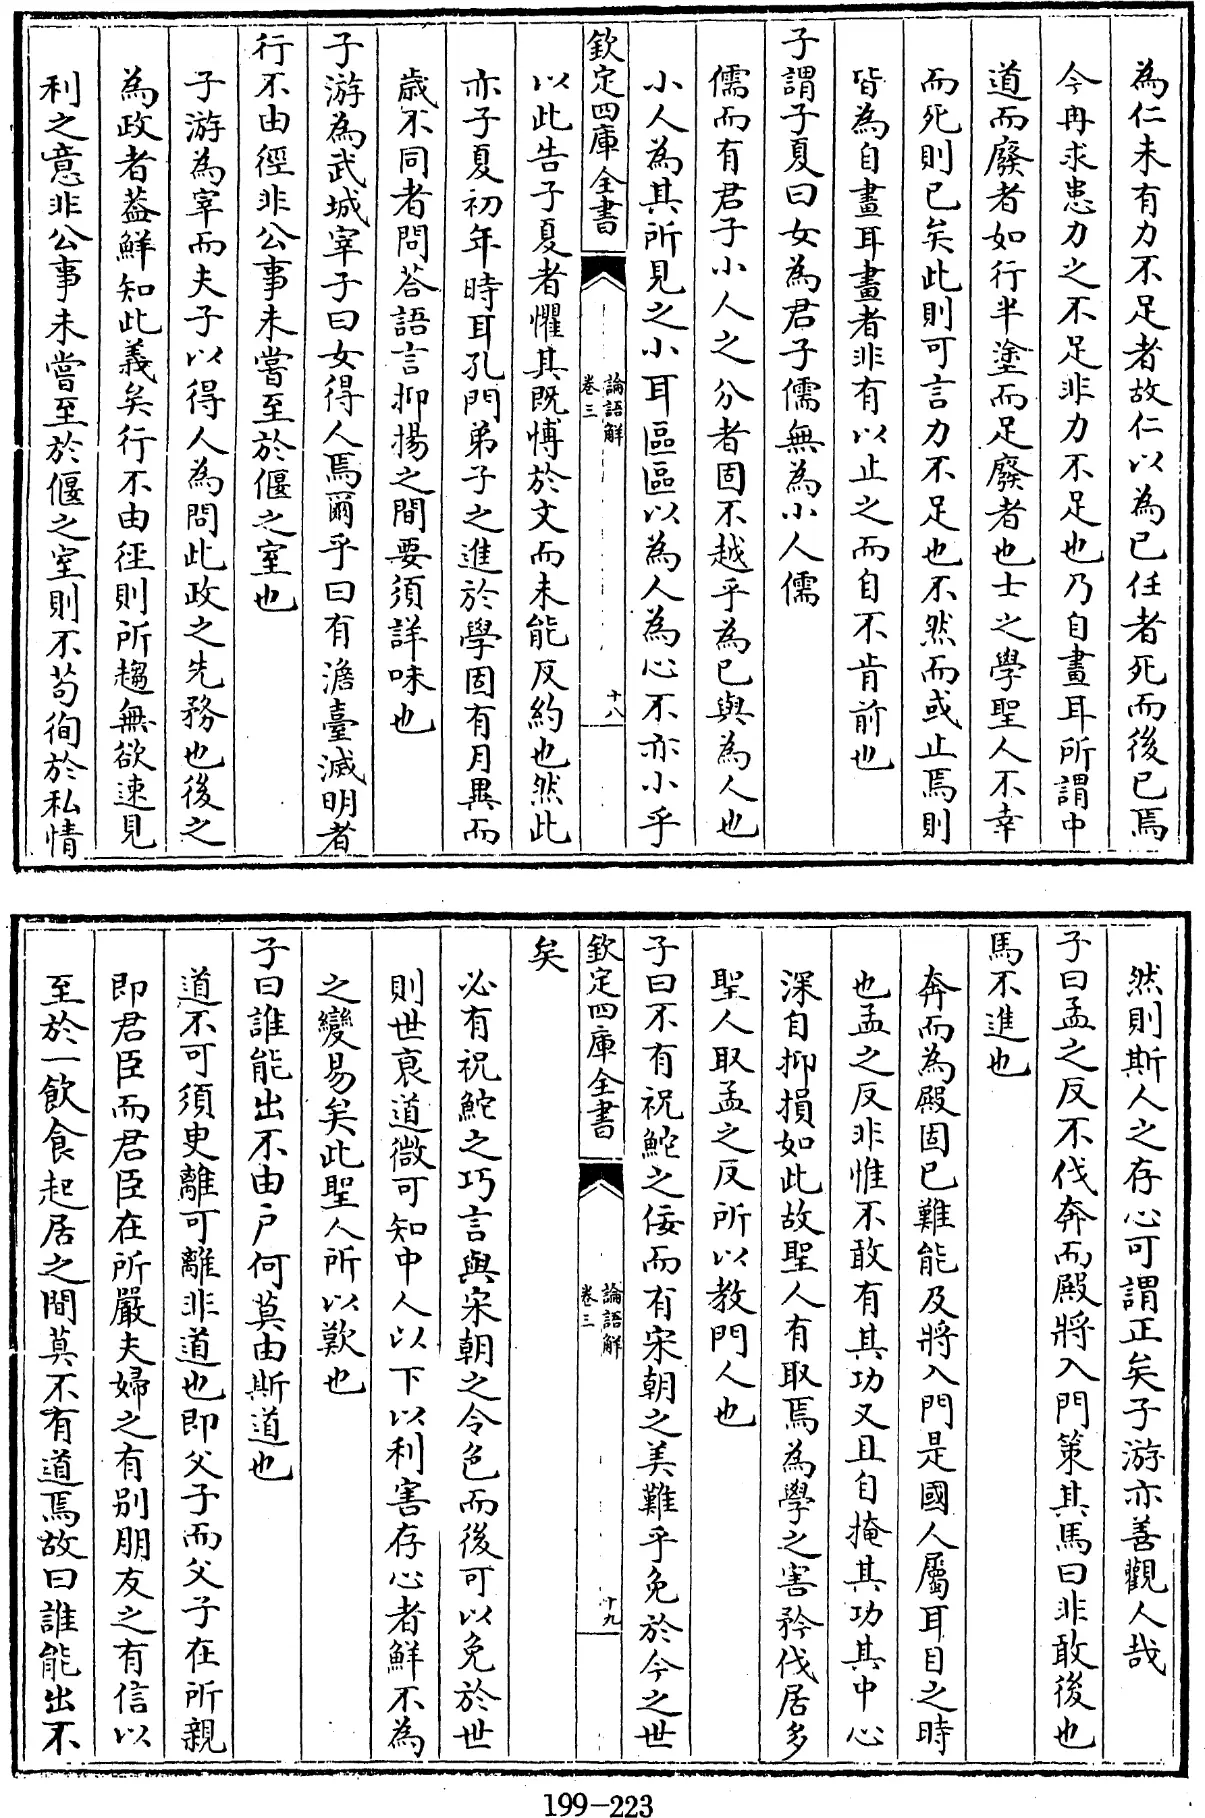 為仁未有力不足者故仁以為已任者死而後已焉
今冉求患力之不足非力不足也乃自畫耳所謂中
道而廢者如行半塗而足廢者也士之學聖人不幸
而死則已矣此則可言力不足也不然而或止焉則
皆為自畫耳畫者非有以止之而自不肯前也
子謂子夏曰女為君子儒無為小人儒
儒而有君子小人之分者固不越乎為已與為人也
小人為其所見之小耳區區以為人為心不亦小乎
欽定四庫全書
論語解
卷三
十八
以此告子夏者懼其既博於文而未能反約也然此
亦子夏初年時耳孔門弟子之進於學固有月異而
歲不同者問荅語言抑揚之間要須詳味也
子游為武城宰子曰女得人焉爾乎曰有澹臺滅明者
行不由徑非公事未嘗至於偃之室也
子游為宰而夫子以得人為問此政之先務也後之
為政者蓋鮮知此義矣行不由徑則所趨無欲速見
利之意非公事未嘗至於偃之室則不茍徇於私情
然則斯人之存心可謂正矣子游亦善觀人哉
子曰孟之反不伐奔而殿將入門策其馬曰非敢後也
馬不進也
奔而為殿固已難能及將入門是國人屬耳目之時
也孟之反非惟不敢有其功又且自掩其功其中心
深自抑損如此故聖人有取焉為學之害矜伐居多
聖人取孟之反所以教門人也
子曰不有祝鮀之佞而有宋朝之美難乎免於今之世
欽定四庫全書
論語解
卷三
十九
矣
必有祝鮀之巧言與宋朝之令色而後可以免於世
則世衰道微可知中人以下以利害存心者鮮不為
之變易矣此聖人所以歎也
子曰誰能出不由户何莫由斯道也
道不可須臾離可離非道也即父子而父子在所親
即君臣而君臣在所嚴夫婦之有别朋友之有信以
至於一飲食起居之間莫不有道焉故曰誰能出不
199-223